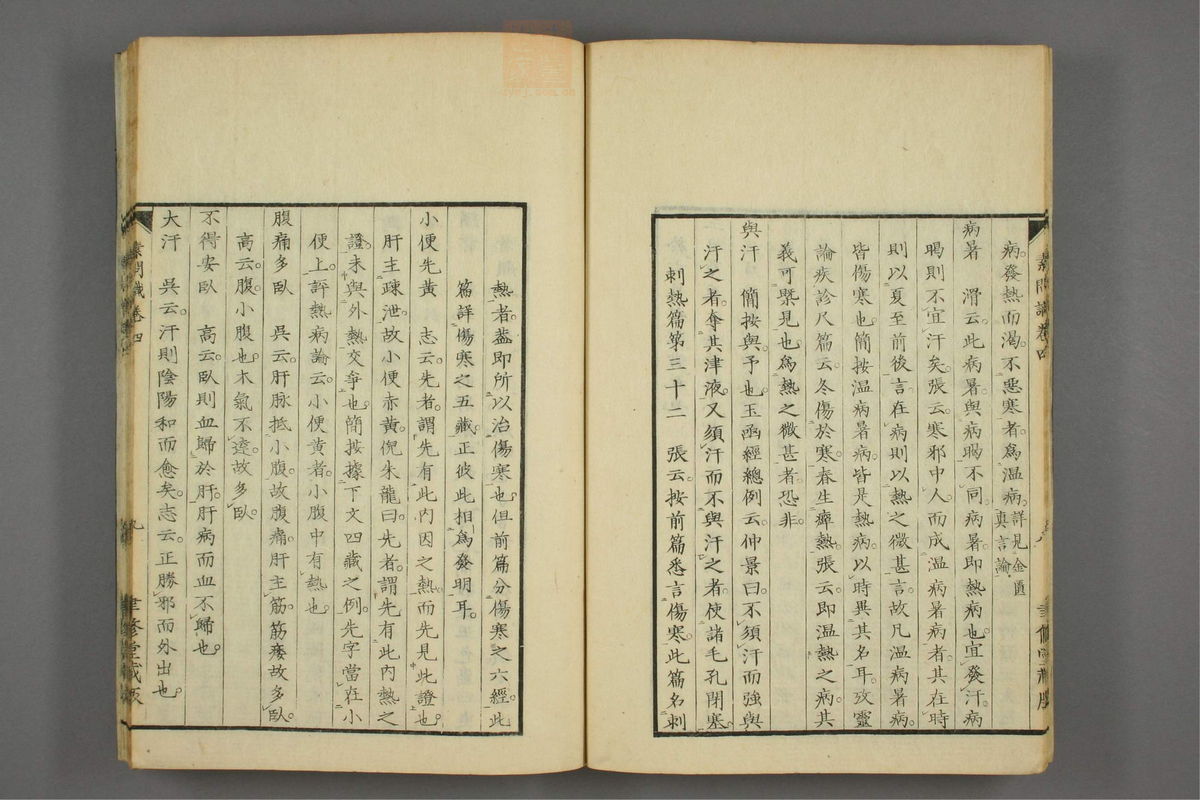 素問識卷四
病發熱而渴不惡寒者爲溫病詳見金匱眞言論
病暑　滑云此病暑與病暍不同病暑即熱病也宜發汗病
暍則不宜汗矣張云寒邪中人而成溫病暑病者其在時
則以夏至前後言在病則以熱之微甚言故凡溫病暑病
皆傷寒也簡按溫病暑病皆是熱病以時異其名耳攷靈
論疾診尺篇云冬傷於寒春生癉熱張云即溫熱之病其
義可槩見也爲熱之微甚者恐非
與汗　簡按與予也玉函經總例云仲景曰不須汗而強與
汗之者奪其津液又須汗而不與汗之者使諸毛孔閉塞
刺熱篇第三十二　張云按前篇悉言傷寒此篇名刺
熱者蓋即所以治傷寒也但前篇分傷寒之六經此
篇詳傷寒之五藏正彼此相爲發明耳
小便先黃　志云先者謂先有此內因之熱而先見此證也
肝主疎泄故小便赤黃倪朱龍曰先者謂先有此內熱之
證未與外熱交爭也簡按據下文四藏之例先字當在小
便上評熱病論云小便黃者小腹中有熱也
腹痛多臥　吳云肝脉抵小腹故腹痛肝主筋筋痿故多臥
高云腹小腹也木氣不達故多臥
不得安臥　高云臥則血歸於肝肝病而血不歸也
大汗　吳云汗則陰陽和而愈矣志云正勝邪而外出也
素問識卷四
九
聿修堂藏版